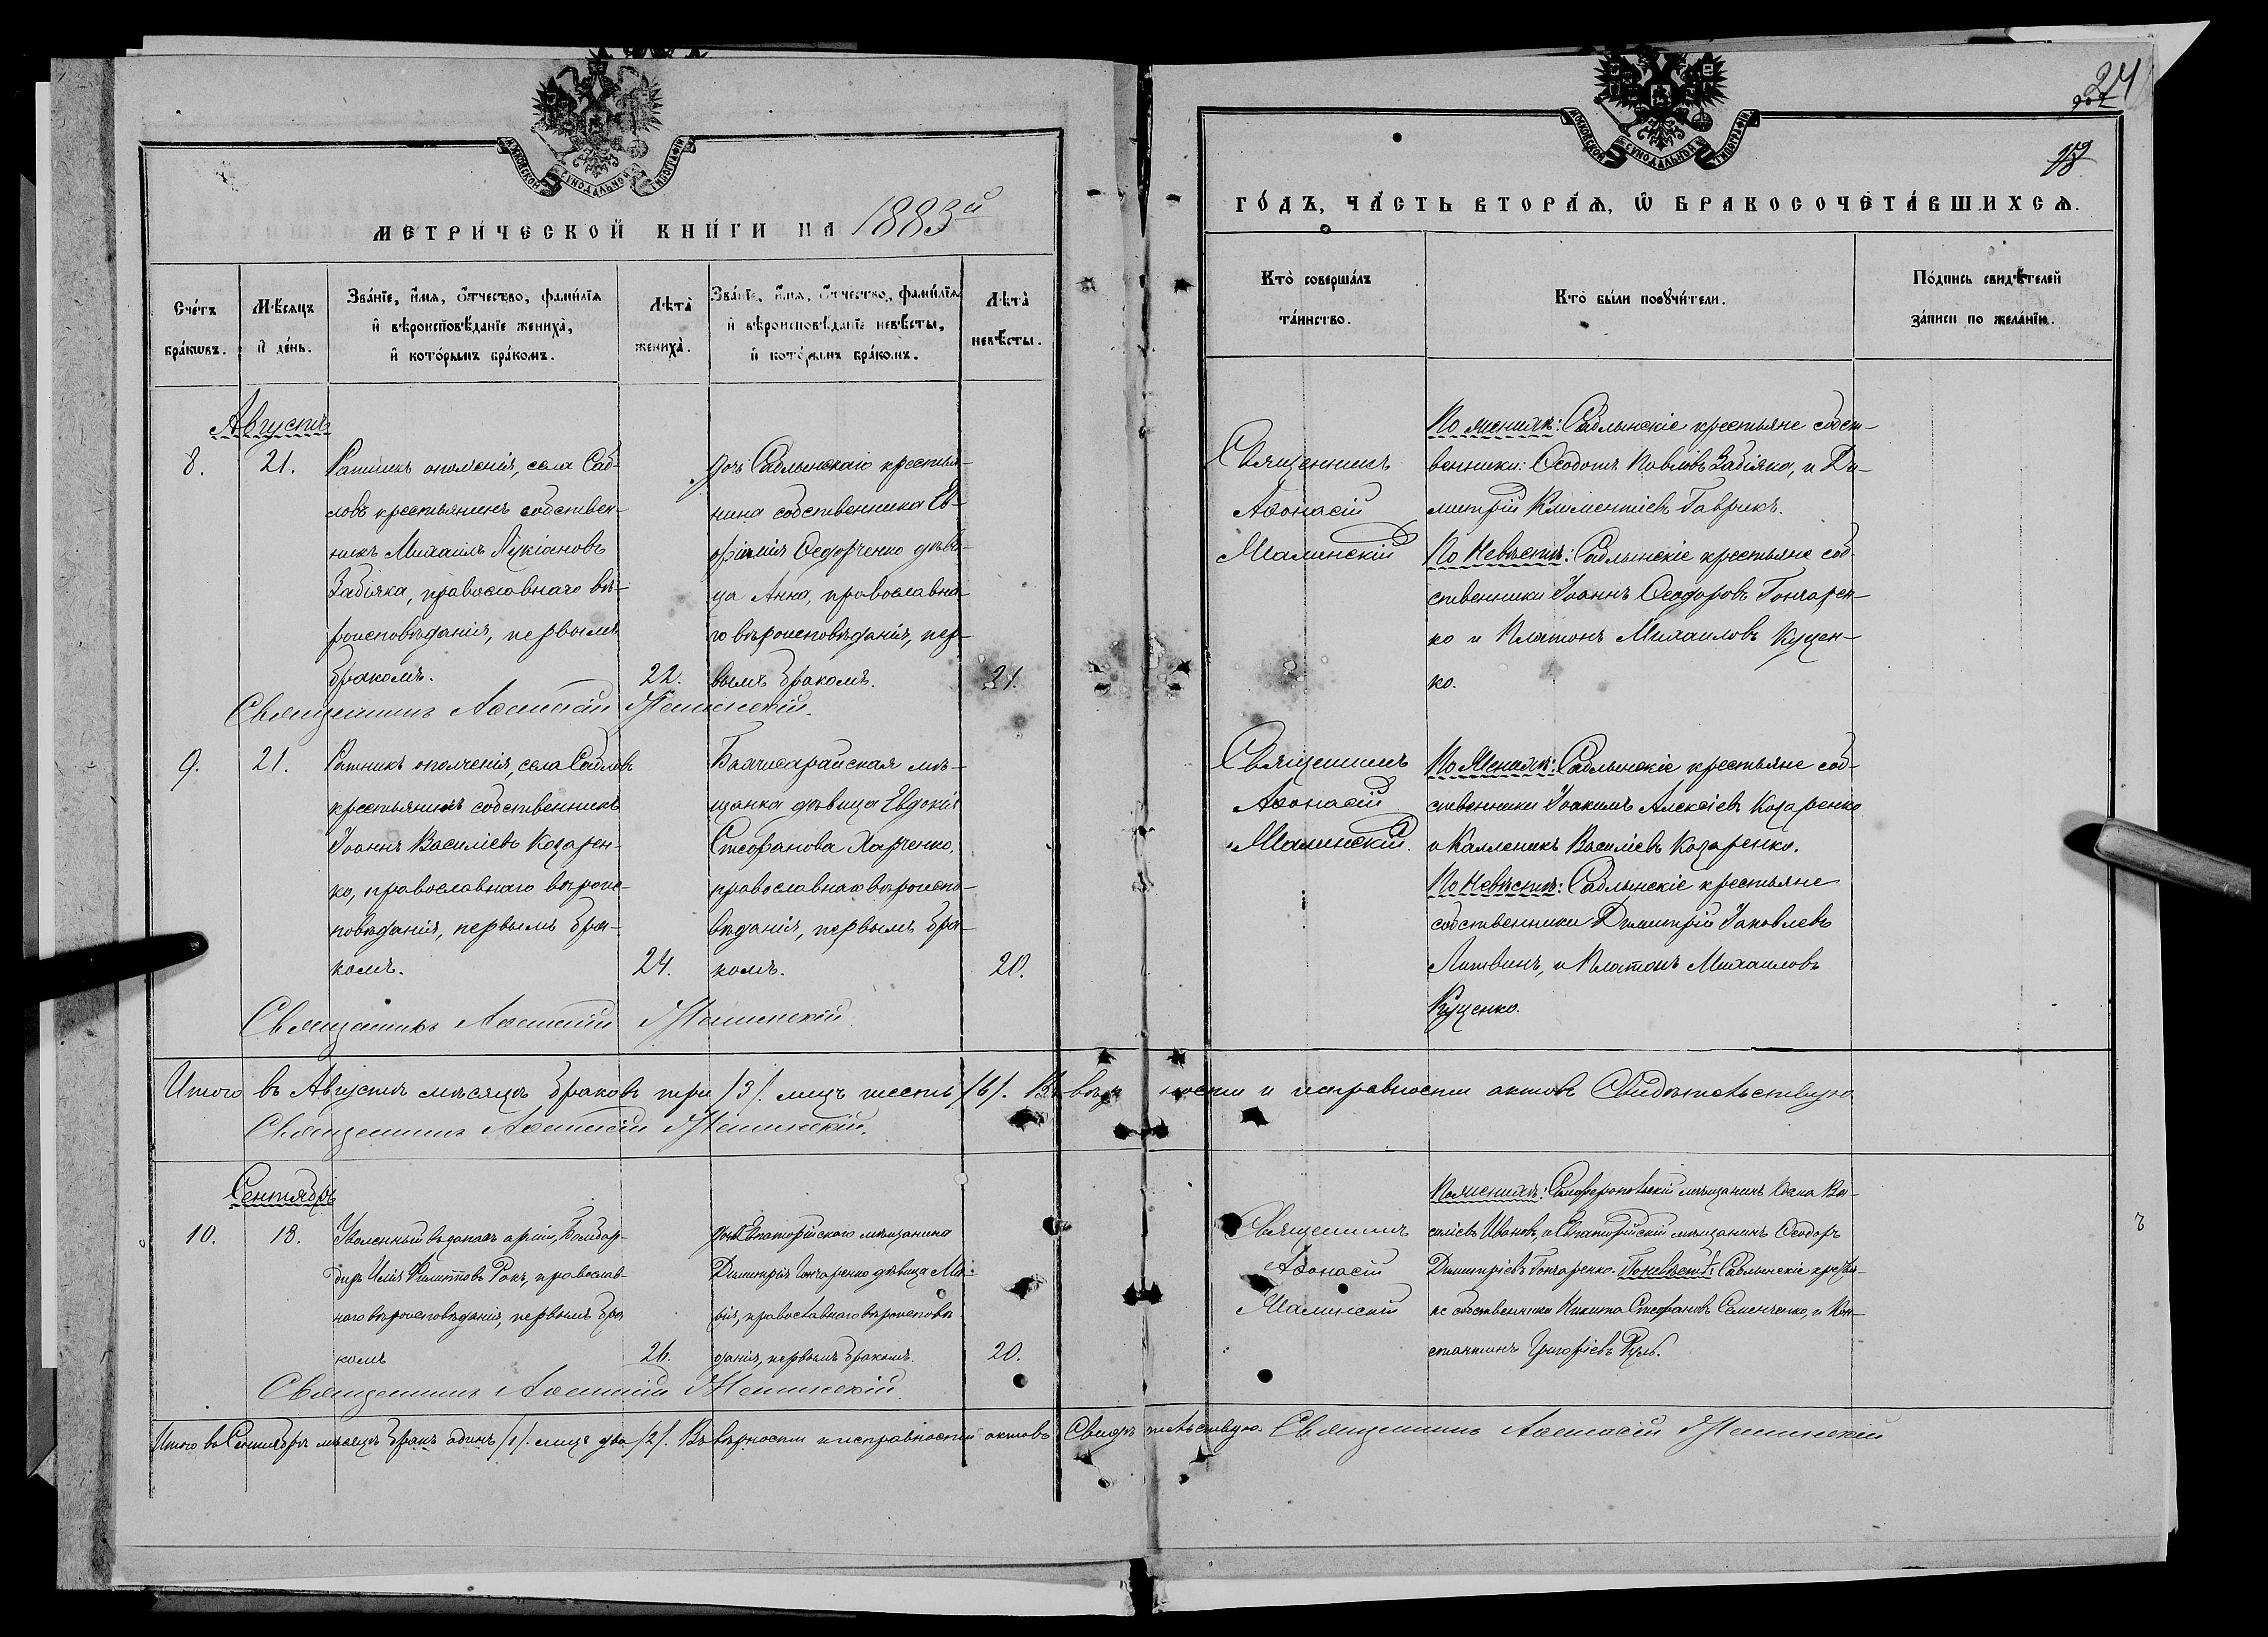 МЕТРИ́ЧЕСКОЙ КНИ́ГИ НА 1883й
Сче́тъ бра́кѡвъ.
Мѣ́сяцъ и҆ де́нь.
Зва́нїе, и҆́мѧ, ѻ҆́тчество, фами́лїѧ и҆ вѣроисповѣ́данїе жениха̀, и҆ кото́рымъ бра́комъ.
Лѣ́та̀ жениха̀.
Зва́нїе, и҆́мѧ, ѻ҆́тчество, фами́лїѧ и҆ вѣроисповѣ́данїе невѣ́сты, и҆ кото́рымъ бра́комъ.
Лѣ́та̀ невѣ́сты.
Августъ
8.
21.
Ратникъ ополченія, села Саб-
ловъ крестьянинъ собствен-
никъ Михаилъ Лукіановъ
Забіяка, православнаго вѣ-
роисповѣданія, первымъ
бракомъ.
22.
дочь Саблынскаго крестья-
нина собственника Ев-
фимія Ѳедорченко дѣви-
ца Анна, православна-
го вѣроисповѣданія, пер-
вымъ бракомъ.
21.
Священникъ Аѳанасій Малинскій.
9.
21.
Ратникъ ополченія, села Сабловъ
крестьянинъ собственникъ
Іоаннъ Василіевъ Козарен-
ко, православнаго вѣроис-
повѣданія, первымъ бра-
комъ.
24.
Бахчисарайская мѣ-
щанка дѣвица Евдокія
Стефанова Харченко,
православнаго вѣроиспо-
вѣданія, первымъ бра-
комъ.
20.
Священникъ Аѳанасій Малинскій
Итого въ Августѣ мѣсяцѣ браковъ три /3/. лицъ шесть /6/. Въ вѣр ности и исправности актовъ Свидѣтельствую
Священникъ Аѳанасій Малинскій.
Сентябрь
10.
18.
Уволенный въ запасъ арміи, Бомбар-
диръ Илія Филиповъ Ракъ, православ-
наго вѣроисповѣданія, первымъ бра
комъ
26.
дочь Евпаторійскаго мѣщанина
Димитрія Гончаренко дѣвица Ма-
рія, православнаго вѣроисповѣ
данія, первымъ бракомъ.
20.
Священникъ Аѳанасій Малинскій.
Итого въ Сентябрѣ мѣсяцѣ бракъ одинъ /1/. лицъ два /2/. Въ вѣрности и исправности актовъ Свидѣтельствую. Священникъ Аѳанасій Малинскій
24
ГО́ДЪ, ЧА́СТЬ ВТОРА́Ѧ, Ѡ҆ БРАКОСОЧЕТА́ВШИХСѦ.
Кто̀ соверша́лъ та́инство.
Кто̀ бы́ли порꙋчи́тели.
По́дпись свидѣ́телей за́писи по жела́нїю.
Священникъ
Аѳонасій
Малинскій
По женихѣ: Саблынскіе крестьяне собст-
венники: Ѳеодотъ Павловъ Забіяка, и Ди-
митрій Климентіевъ Гаврикъ.
По Невѣстѣ: Саблынскіе крестьяне соб
ственники Іоаннъ Ѳеодоровъ Гончарен-
ко и Платонъ Михаиловъ Куцен-
ко.
Священникъ
Аѳонасій
Малинскій.
По Женихѣ: Саблынскіе крестьяне соб-
ственники Іоакимъ Алексіевъ Козаренко
и Каллиникъ Василіевъ Козаренко.
По Невѣстѣ: Саблынскіе крестьяне
собственники Димитрій Іаковлевъ
Литвинъ, и Платонъ Михаиловъ
Куценко.
Священникъ
Аѳонасій
Малинскій
По женихѣ: Симферопольскій мѣщанинъ Косма Ва-
силіевъ Ивановъ, и Евпаторійскій мѣщанинъ Ѳеодоръ
Димитріевъ Гончаренко. По невѣстѣ: Саблынскіе крестья-
не собственники Никита Стефановъ Семенченко, и Кон-
стантинъ Григоріевъ Руль.